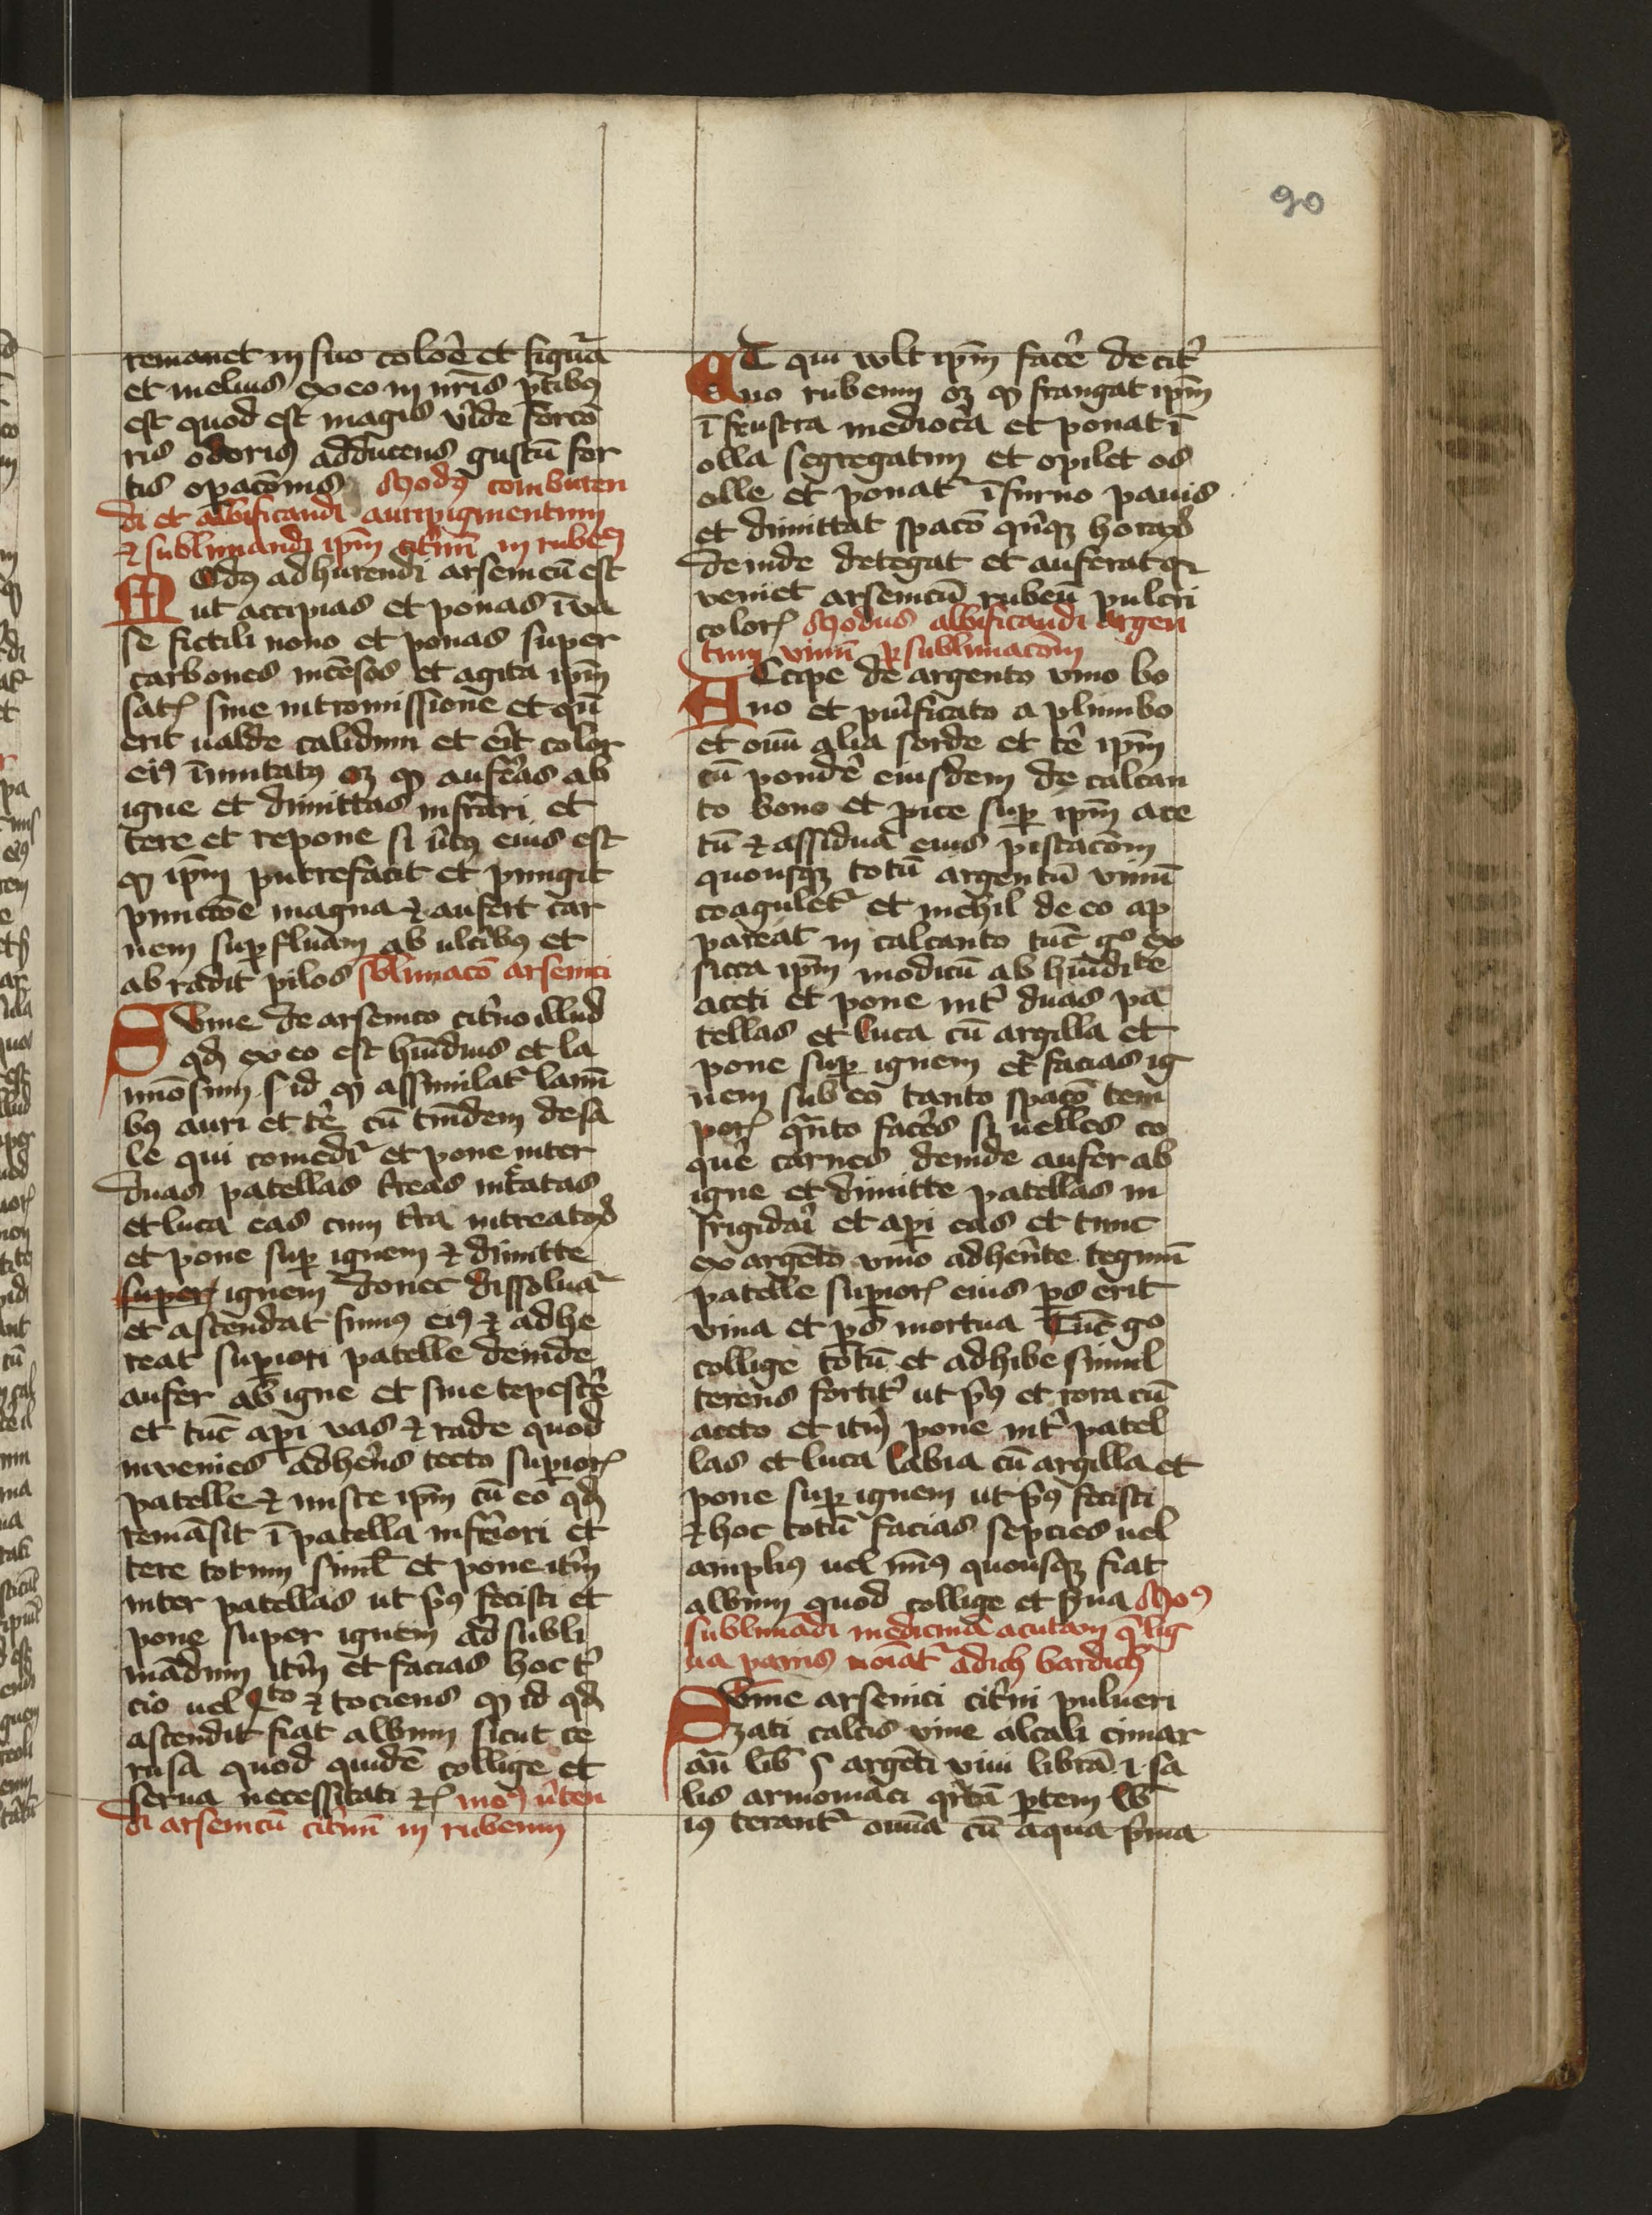 90
remanet in suo coloē et figura
et melius ex eo in nr̄is ptibꝰ
est quod est magis vīde forco
ris odoris adducens gustū for
tis opacōnis Modꝰ comburen
di et albificandi auripigmentum
& sublimandi ipm̄ citrinū in rubeū
Modꝰ adhurendi arsenicū est
ut accipias et ponas ī va
se fictili nouo et ponas super
carbones incēsos et agita ipm̄
sine intromissione et qn̄
erit ualde calidum et erit color
eiꝰ īmutatꝰ oꝫ ꝙ auferas ab
igne et dimittas infrīari et
tere et repone si uirtꝰ eius est
ꝙ ipm̄ putrefacit et pungit
punctōe magna & aufert car
nem supfluam ab ulceribꝰ et
abradit pilos sublimacō arsenici
Sume de arsenico citrino illud
qd̄ ex eo est humidius et la
minōsum s id ꝙ assimilatr lami
bꝰ auri et tere cū tm̄dem de sa
le qui comeditr et pone inter
duas patellas t̄reas intratas
et luca eas cum t̄ra
et pone sup ignem & dimitte
super ignem donec dissoluatr
et ascendat fumꝰ eiꝰ & adhe
reat supiori patelle deinde
aufer ab igne et sine tepescē
et tūc api vas & rade quod
invenies adherēs tecto supiorꝭ
patelle & misce ipm̄ cū eo qd̄
remāsit ī patella inferiori et
tere totum simul et pone itm̄
inter patellas ut pꝰ fecisti et
pone super ignem ad subli
mādum itm̄ et facias hoc t̄
cio uel 4to & tociens ꝙ id qd̄
ascendit fiat album sicut ce
rusa quod quidē collige et
serua necessitati modꝰ uten
di arsenicū citrinū in rubeum
Et qui vult ipm̄ facē de citr
ino rubeum oꝫ ꝙ frangat ipm̄
ī frustra mediocā et ponat ī
olla segregatim et opilet os
olle et ponatr ī furno panis
et dimittat spacō quīqꝫ horaꝝ
deinde detegat et auferat qꝛ
veniet arsenicū rubeū pulcri
colorꝭ Modus albificandi argen
tum vivū p sublimacōm
Accipe de argento vivo bo
no et purificato a plumbo
et omī alia sorde et tē ipm̄
cū pondē eiusdem de calcan
to bono et pice sup ipm̄ ace
tū & assidua eius pistacōm
quousqꝫ totū argentū vivū
coaguletr et nichil de eo ap
pareat in calcanto tūc go ex
sicca ipm̄ modicū ab humidite
aceti et pone int duas pa
tellas et luca cū argilla et
pone sup ignem et facias ig
nem sub eo tanto spacō tem
porꝭ quāto facēs si uelles co
quē carnes deinde aufer ab
igne et dimitte patellas in
frigidari et api eas et tunc
ex argēto vivo adherēte tegmī
patelle supiorꝭ eius ps erit
viva et ps mortua Tūc go
collige totū et adhibe simul
terens fortitr ut pꝰ et rora cū
aceto et itm̄ pone intr patel
las et luca labia cū argilla et
pone sup ignem ut pꝰ fecisti
& hoc totū facias sepcies uel
amplius uel minꝰ quousqꝫ fiat
album quod collige et serua Modꝰ
sublimādi medicinā acutam q̄ lig
ua noīatr adich bardich
Sume arsenici citrini pulueri
zati calcis vive alcali cimar
an̄ lib̄ argēti vivi librā 1 sa
lis armoniaci qr̄tā ptem lib̄
iꝰ terantr omīa cū aqua pma